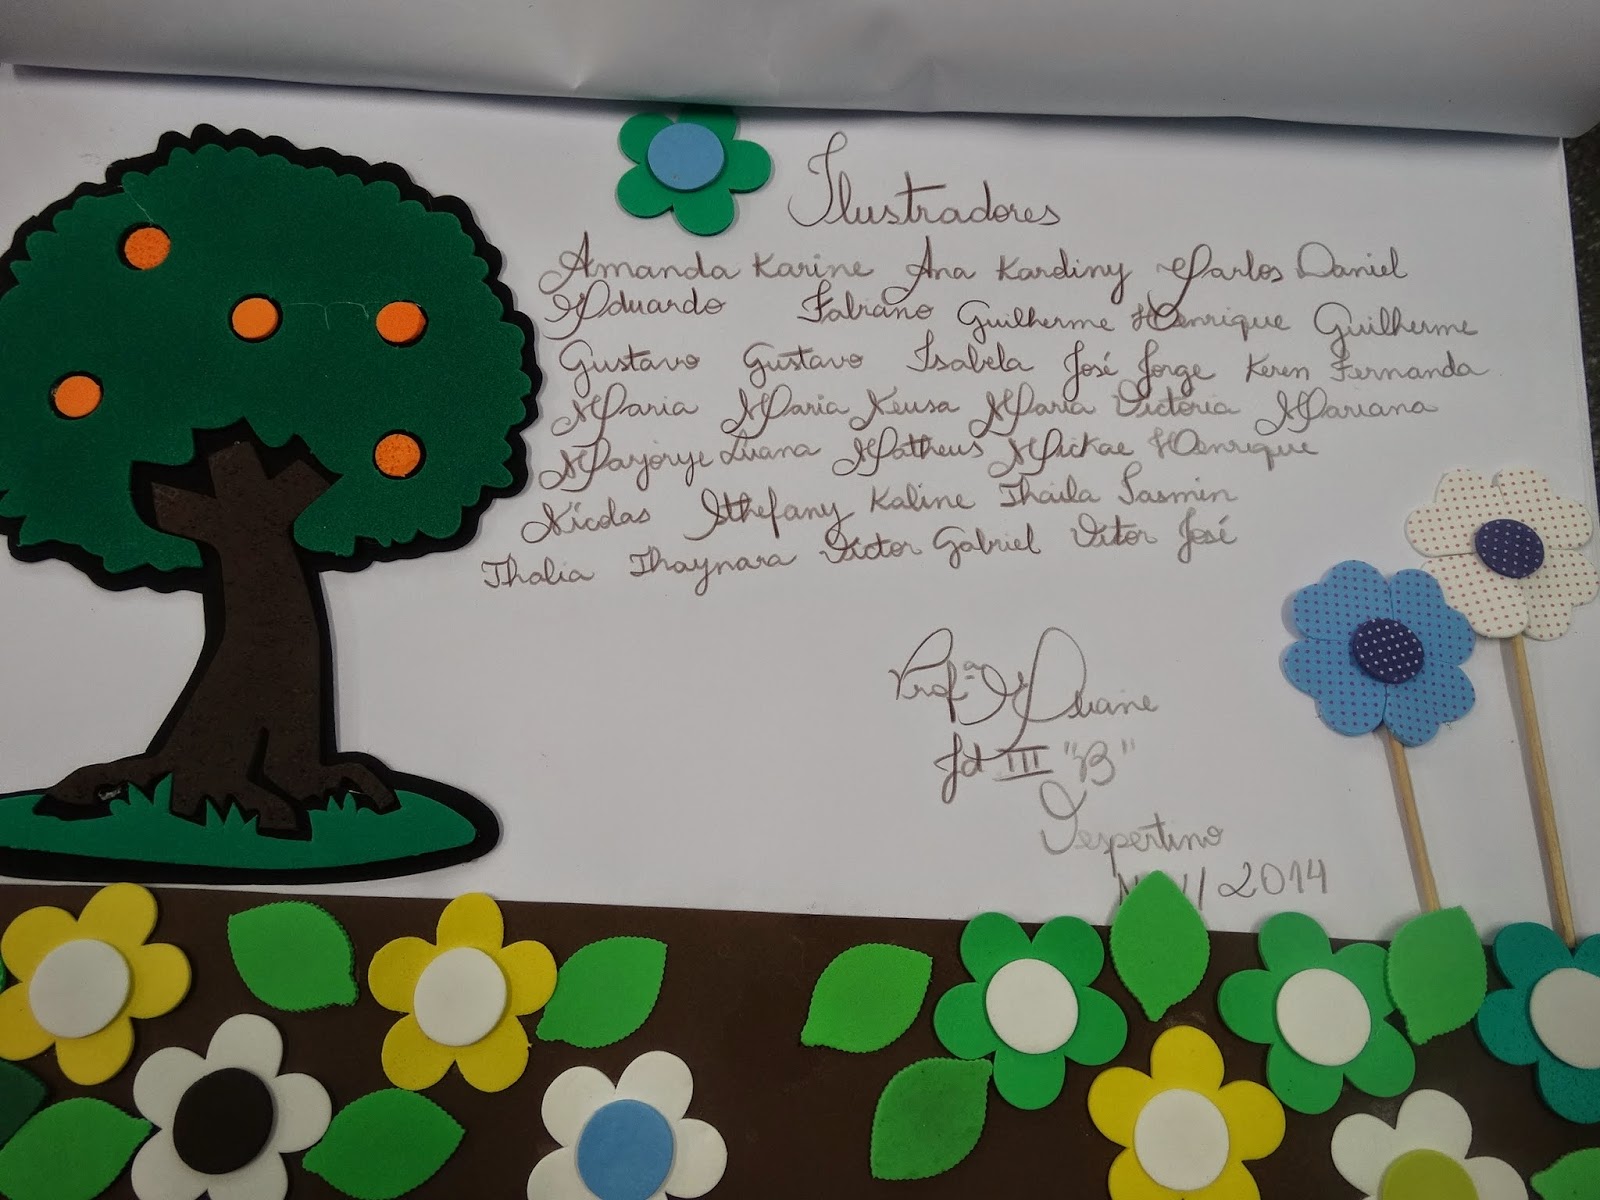 Ilustradores
Amanda Karine Ana Kardiny Carlos Daniel
Eduardo Fabiano Guilherme Henrique Guilherme
Gustavo Gustavo Isabela José Jorge Keren Fernanda
Maria Maria Neusa Maria Victória Mariana
Marjorye Luana Matheus Mickae Henrique
Nícolas Sthefany Kaline Thaila Iasmin
Thalia Thaynara Victor Gabriel Vitor José
Profª
Jd III "B"
Vespertino
2014